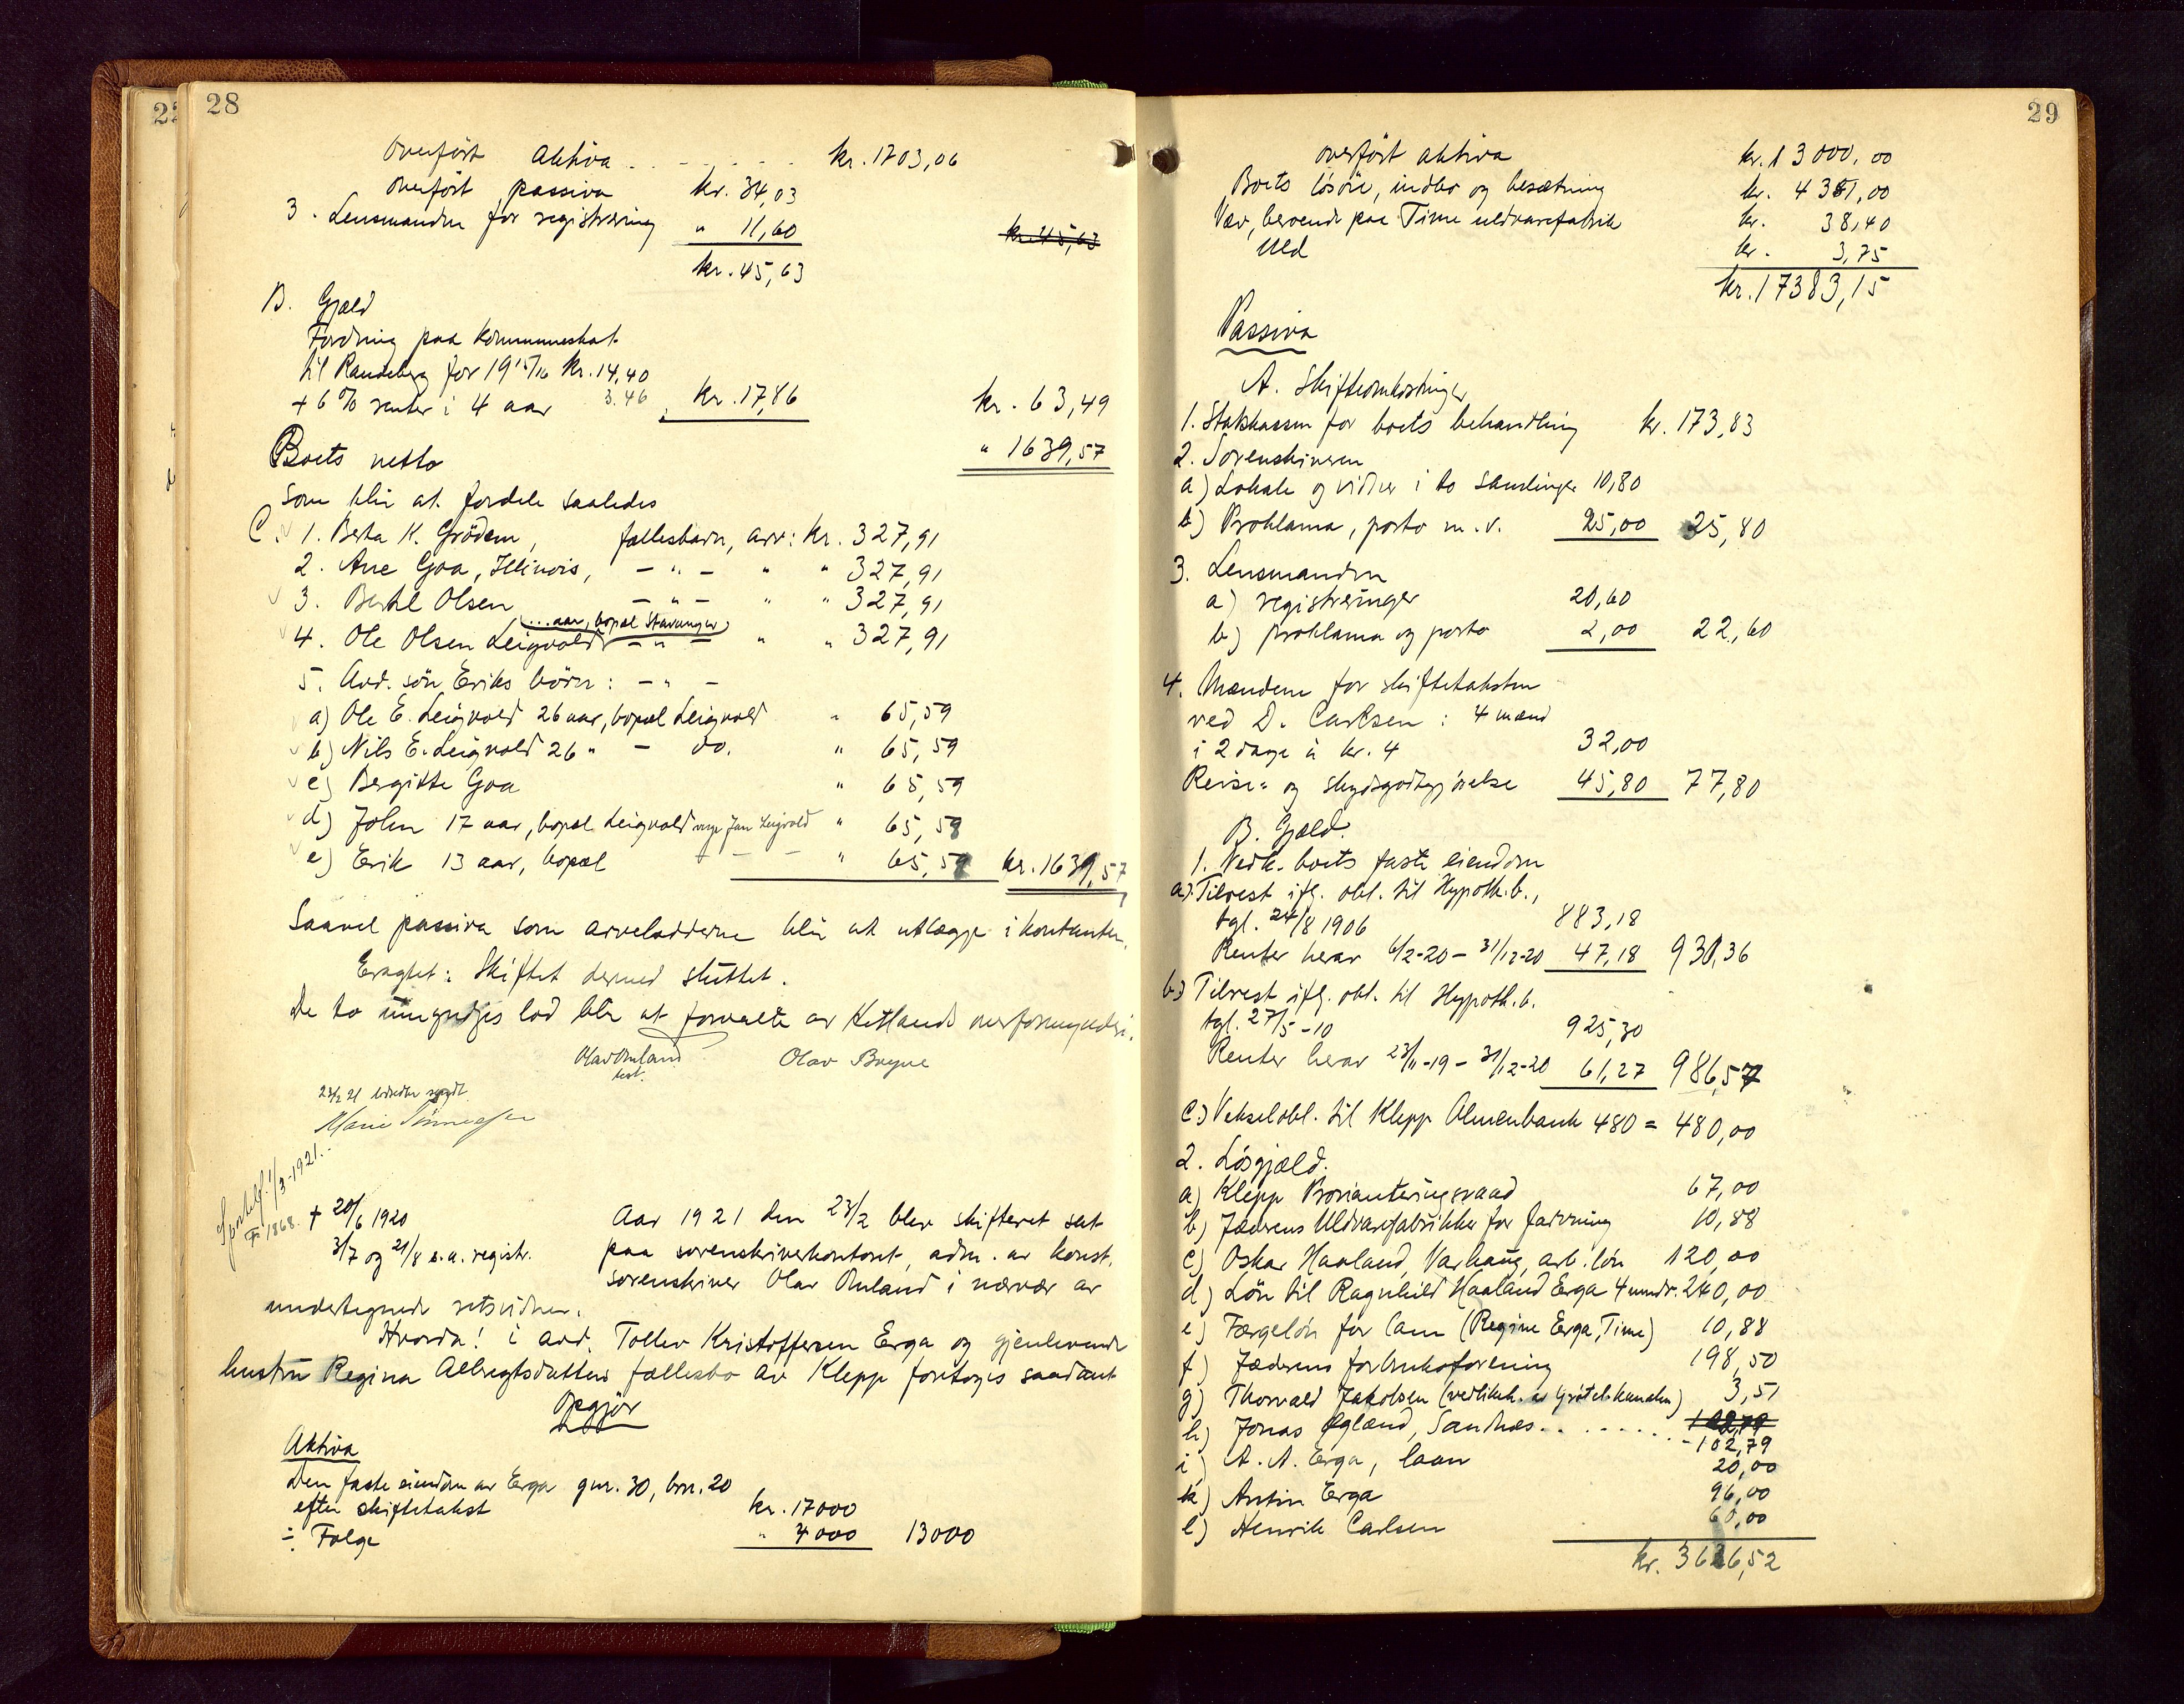 28
Overført aktiva . - . - . - . kr. 1703,06
Overført passiva kr. 34,03
3. Lensmanden for registrering " 11,60 kr. 45,63
kr. 45,63
B. Gjæld
Fordring paa kommuneskat
til Randeberg for 1915/16 kr. 14,40
+ 6% renter i 4 aar 3.46 kr. 17,86 kr. 63,49
Boets netto " 1639,57
som blir at fordele saaledes
C. 1. Berta K. Grödem, fællesbarn, arv: kr. 327,91
2. Ane Goa, Illinois, - " - " " 327,91
3. Bertel Olsen - " - " " 327,91
(... aar, bopæl Stavanger)
4. Ole Olsen Leigvold - " - " " 327,91
5. Avd. sön Eriks börn: - " -
a) Ole E. Leigvold 26 aar, bopæl Leigvold " 65,59
b) Nils E. Leigvold 26 " - do. " 65,59
c) Bergitte Goa " 65,59
d) John 17 aar, bopæl Leigvold verge Jan Leigvold " 65,58
e) Erik 13 aar, bopæl - - - " 65,58 kr. 1639,57
Saavel passiva som arveladderne blir at utlægge i kontanter.
Eragtet: Skiftet dermed sluttet.
De to umyndiges lod blir at forvalte av Hetlands overformynderi.
Olav Omland Olav Bryne
test.
23/2 21
Marie Tönnessen
Sportelf. 1/3-1921.
F. 1868.
+ 20/6 1920
3/7 og 21/8 s.a. registr.
Aar 1921 den 23/2 blev skifteret sat
paa sorenskriverkontoret, adm. av konst.
sorenskriver Olav Omland i nærvær av
undertegnede retsvidner.
Hvorda! i avd. Tollev Kristoffersen Erga og gjenlevende
hustru Regina Albregtsdatters fællesbo av Klepp foretoges saadant
Opgjör
Aktiva
Den faste eiendom av Erga gnr. 30, brn. 20
efter skiftetakst kr. 17000
÷ Folge " 4000 13000
29
overfört aktiva kr. 13000,00
Boets lösöre, indbo og besætning kr. 4341,00
Væv, beroende paa Time uldvarefabrik kr. 38,40
Uld kr. 3,75
kr. 17383,15
Passiva
A. Skifteomkostninger
1. Statskassen for boets behandling kr. 173,83
2. Sorenskriveren
a) Lokale og vidner i to samlinger 10,80
b) Proklama, porto m.v. 25,00 25,80
3. Lensmanden
a) registreringer 20,60
b) proklama og porto 2,00 22,60
4. Mændene for skiftetaksten
ved D. Carlsen: 4 mænd
i 2 dage à kr. 4 32,00
Reise- og skydsgodtgjörelse 45,80 77,80
B. Gjæld.
1. Vedk. boets faste eiendom
a) Tilrest ifl. obl. til Hypoth.b.,
tgl. 24/8 1906 883,18
Renter herav 6/2-20 - 31/12-20 47,18 930,36
b) Tilrest ifl. obl. til Hypoth.b.
tgl. 27/5-10 925,30
Renter herav 23/11-19 - 31/12-20 61,27 986,57
c) Vekselobl. til Klepp Almenbank 480 = 480,00
2. Lösgjæld.
a) Klepp Provianteringsraad 67,00
b) Jæderens Uldvarefabrikker for farvning 10,88
c) Oskar Haaland, Varhaug, arb.lön 120,00
d) Lön til Ragnhild Haaland Erga 4 mndr. 240,00
e) Færgelön for lam (Regine Erga, Time) 10,88
f) Jæderens forbruksforening 198,50
g) Thorvald Jakobsen (vedlikeh. av Grötelkanalen) 3,51
h) Jonas Øglænd, Sandnæs . . . . . . . . 102,79
- 102,79
i) A. A. Erga, laan 20,00
k) Antin Erga 96,00
l) Henrik Carlsen 60,00
kr. 3626,52